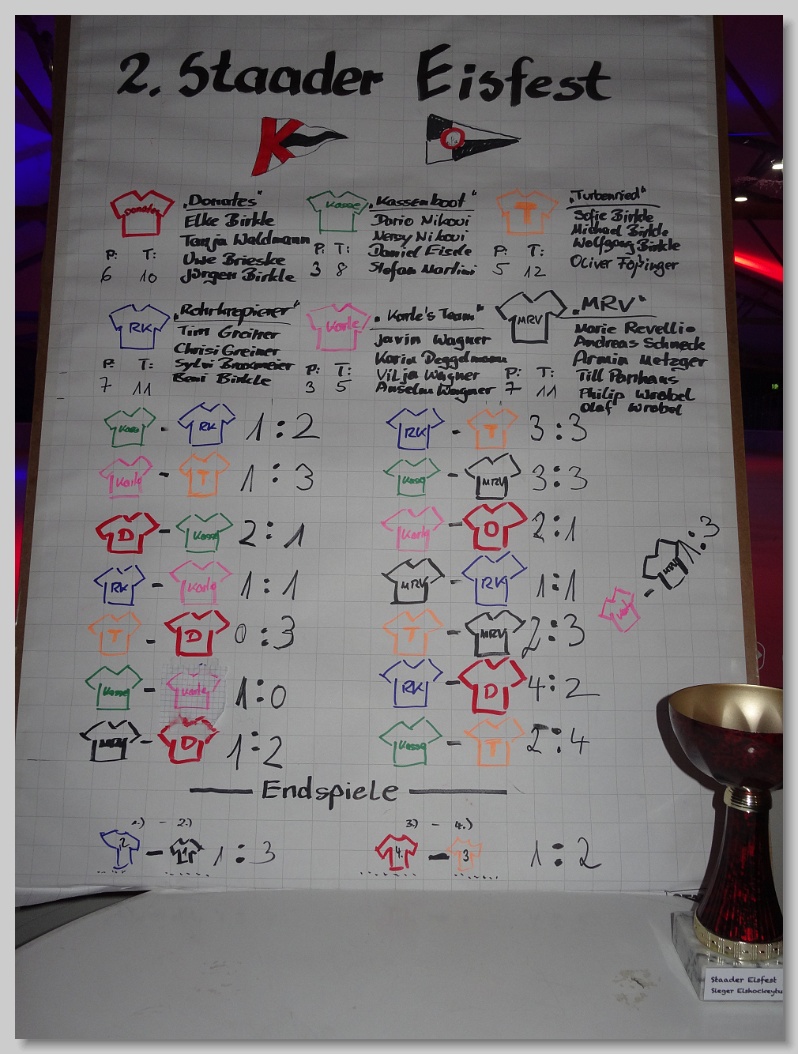 2. Staader Eisfest
K
Donates
„Donates"
Elke Birkle
Tanja Waldmann
Uwe Brieske
Jürgen Birkle
P: T:
6 10
Kasse
„Kassenboot"
Dario Nikoui
Nersy Nikoui
Daniel Eisele
Stefan Martini
P: T:
3 8
T
„Turbenried"
Sofie Birkle
Michael Birkle
Wolfgang Birkle
Oliver
P: T:
5 12
RK
„Rohrkrepierer"
Tim Greiner
Chrisi Greiner
Sylvi
Beni Birkle
P: T:
7 11
Karle
„Karle's Team"
Javin Wagner
Karin Deggelmann
Vilja Wagner
Anselm Wagner
P: T:
3 5
MRV
„MRV"
Marie Revellio
Andreas Schneck
Armin Metzger
Till Panhans
Philip Wrobel
Olaf Wrobel
P: T:
7 11
Kasse - RK 1:2
Karle - T 1:3
D - Kasse 2:1
RK - Karle 1:1
T - D 0:3
Kasse - Karle 1:0
MRV - D 1:2
RK - T 3:3
Kasse - MRV 3:3
Karle - D 2:1
MRV - RK 1:1
T - MRV 2:3
RK - D 4:2
Kasse - T 2:4
Karle - MRV 1:3
Endspiele
1.) - 2.)
2 - 1 1:3
3.) - 4.)
4. - 3 1:2
Staader Eisfest
Sieger Eishockeytu